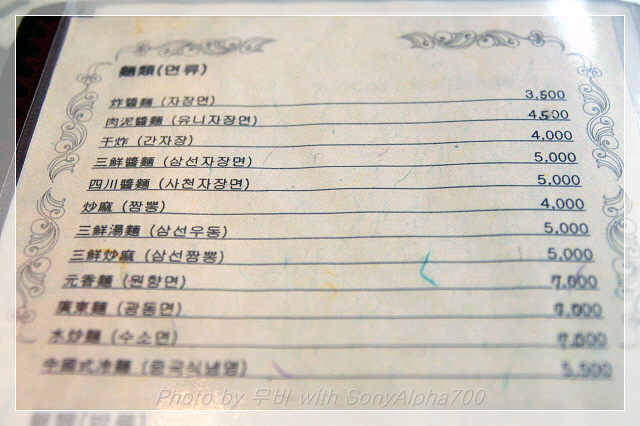 麵類(면류)
炸醬麵 (자장면) 3,500
肉泥醬麵 (유니자장면) 4,500
干炸 (간자장) 4,000
三鮮醬麵 (삼선자장면) 5,000
四川醬麵 (사천자장면) 5,000
炒麻 (짬뽕) 4,000
三鮮湯麵 (삼선우동) 5,000
三鮮炒麻 (삼선짬뽕) 5,000
元香麵 (원향면) 7,000
廣東麵 (광동면) 7,000
水炒麵 (수소면) 7,000
中國式冷麵 (중국식냉면) 5,500
Photo by 우비 with SonyAlpha700